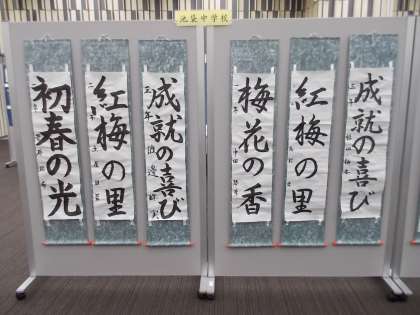 池袋中学校
成就の喜び
紅梅の里
初春の光
成就の喜び
紅梅の里
梅花の香